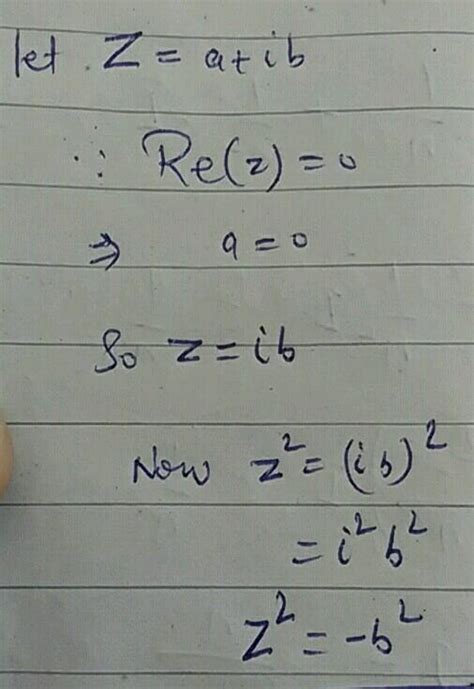 let Z = a+ib
∵ Re(z) = 0
⇒ a = 0
So z = ib
Now z² = (ib)²
= i²b²
Z² = -b²